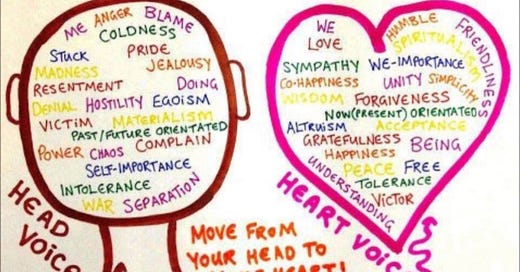 ME ANGER BLAME
COLDNESS
STUCK PRIDE
MADNESS JEALOUSY
RESENTMENT DOING
DENIAL HOSTILITY EGOISM
VICTIM MATERIALISM
PAST/FUTURE ORIENTATED
POWER CHAOS COMPLAIN
SELF-IMPORTANCE
INTOLERANCE
WAR SEPARATION
HEAD
VOICE
WE HUMBLE FRIENDLINESS
LOVE SPIRITUALISM
SYMPATHY WE-IMPORTANCE
CO-HAPPINESS UNITY SIMPLICITY
WISDOM FORGIVENESS
NOW(PRESENT) ORIENTATED
ALTRUISM ACCEPTANCE
GRATEFULNESS BEING
HAPPINESS
PEACE FREE
UNDERSTANDING TOLERANCE
VICTOR
HEART VOICE
MOVE FROM
YOUR HEAD TO
HEART!